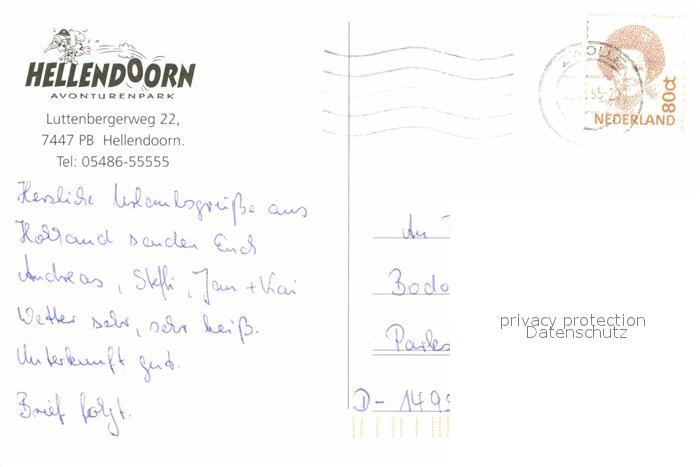 HELLENDOORN
AVONTURENPARK
Luttenbergerweg 22,
7447 PB Hellendoorn.
Tel: 05486-55555
Herzliche Urlaubsgrüße aus
Holland senden Euch
Andreas, Steffi, Jan + Kai
Wetter sehr, sehr heiß.
Unterkunft gut.
Brief folgt.
ZWOLLE
95-2
80ct
NEDERLAND
An
Bodo
Parks
D- 149
privacy protection
Datenschutz